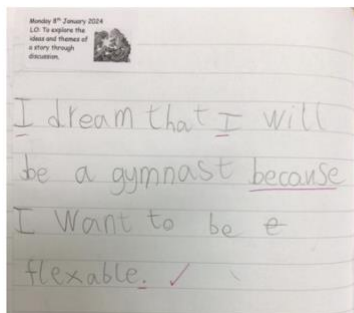 Monday 8th January 2024
LO: To explore the
ideas and themes of
a story through
discussion.
I dream that I will
be a gymnast because
I want to be e
flexable.